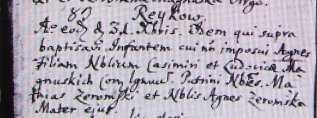 Reykow.
Aō eōdē 3d. Xbris. Idem qui supra
baptisavi Infantem cui nn imposui Agnes
Filiam Nblium Casimiri et Ludovica Ma-
gnuskich Con. Patrini Nbles. Ma-
thias Zeromski et Nblis Agnes Zeromska
Mater ejus.